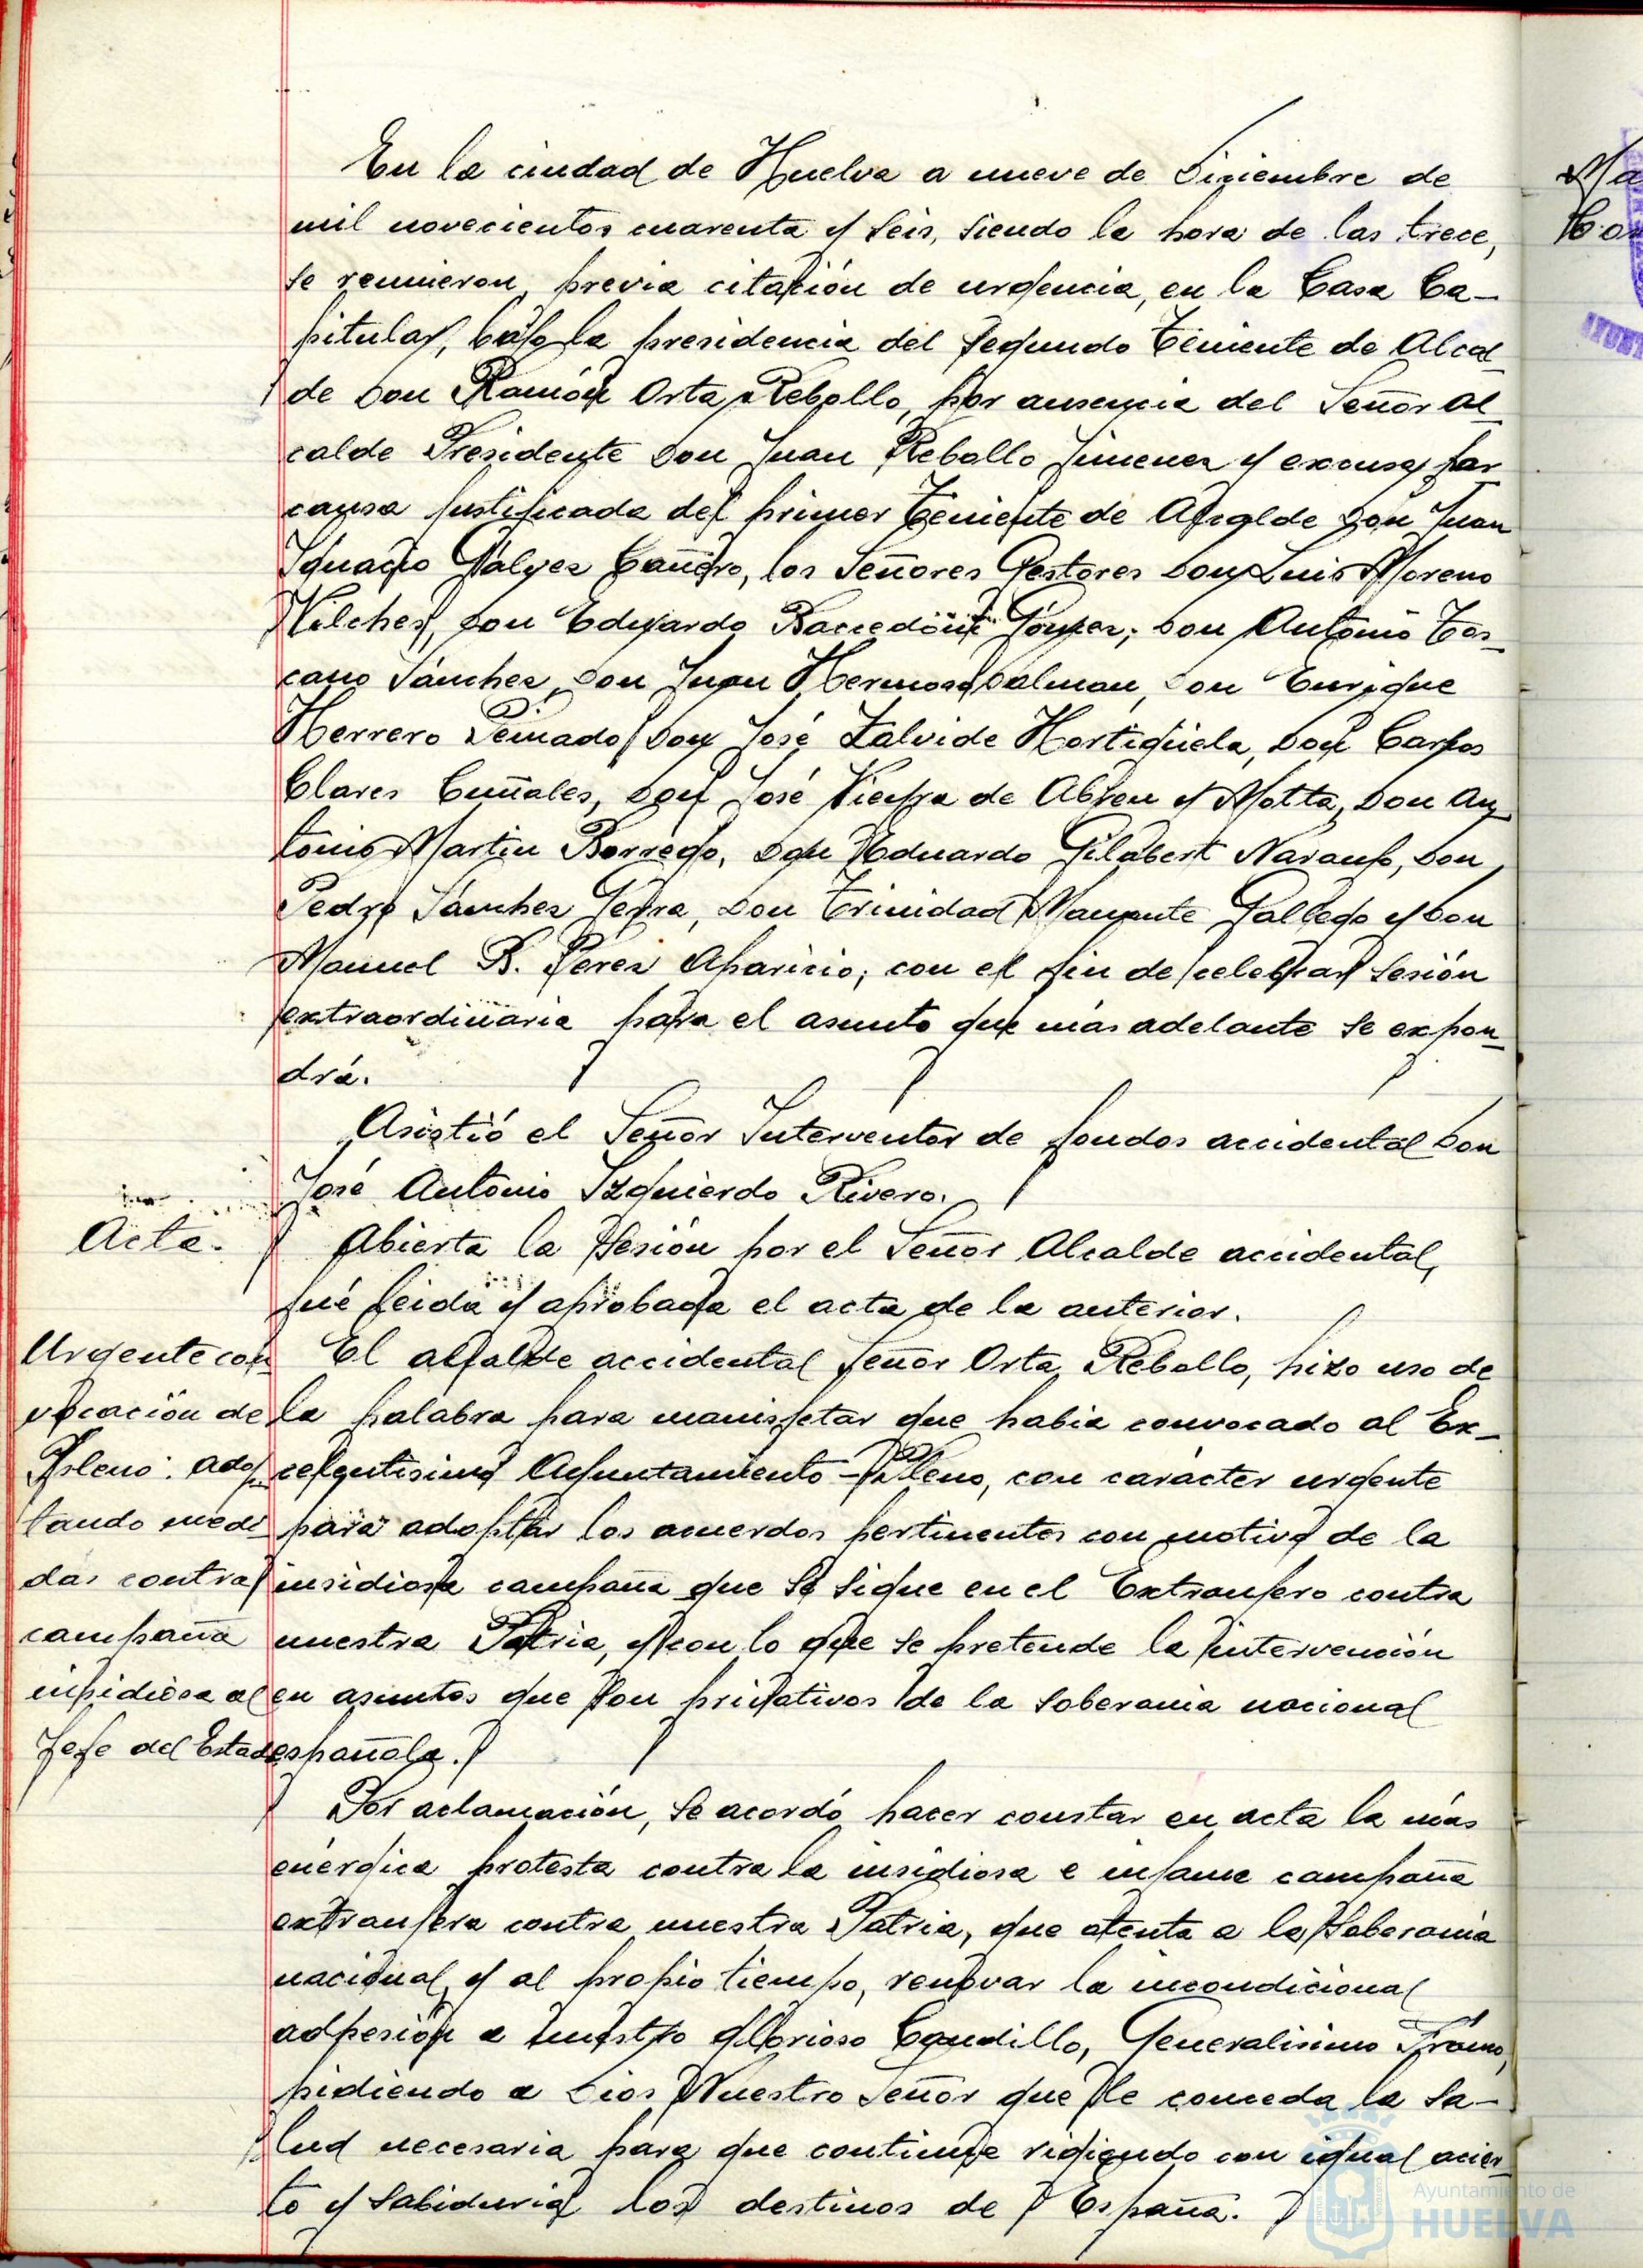 En la ciudad de Huelva a nueve de Diciembre de
mil novecientos cuarenta y seis, siendo la hora de las trece,
se reunieron, previa citación de urgencia, en la Casa Ca-
pitular, bajo la presidencia del Segundo Teniente de Alcal-
de Don Ramón Orta Rebollo, por ausencia del Señor Al-
calde Presidente Don Juan Rebollo Jimenez y excusa por
causa justificada del primer Teniente de Alcalde Don Juan
Ignacio Galvez Cañero, los Señores Gestores Don Luis Moreno
Vilches, Don Eduardo Gómez, Don Antonio Tos-
cano Sánchez, Don Juan Hermoso Dalman, Don Enrique
Herrero Peinado, Don José Zalvide Hortigüela, Don Carlos
Clares Cuñales, Don José Vieyra de Abreu y Motta, Don An-
tonio Martin Borrego, Don Eduardo Gilabert Naranjo, Don
Pedro Sánchez Don Trinidad Gallego y Don
Manuel B. Perez Aparicio; con el fin de celebrar Sesión
extraordinaria para el asunto que más adelante se expon-
drá.
Asistió el Señor Interventor de fondos accidental Don
José Antonio Izquierdo Rivero.
Acta.
Abierta la Sesión por el Señor Alcalde accidental,
fué leida y aprobada el acta de la anterior.
Urgente con
vocación de
Pleno: adop
tando medi
das contra
campaña
insidiosa al
Jefe del Estado
El alcalde accidental Señor Orta Rebollo, hizo uso de
la palabra para manisfetar que habia convocado al Ex-
celentisimo Ayuntamiento-Pleno, con carácter urgente
para adoptar los acuerdos pertinentes con motivo de la
insidiosa campaña que se sigue en el Extranjero contra
nuestra Patria, y con lo que se pretende la intervención
en asuntos que son privativos de la soberania nacional
española.
Por aclamación, se acordó hacer constar en acta la más
enérgica protesta contra la insidiosa e infame campaña
extranjera contra nuestra Patria, que atenta a la Soberania
nacional, y al propio tiempo, renovar la incondicional
adhesión a nuestro glorioso Caudillo, Generalisimo Franco,
pidiendo a Dios Nuestro Señor que le conceda la sa-
lud necesaria para que continue rigiendo con igual acier-
to y sabiduria los destinos de España.
Ayuntamiento de
HUELVA